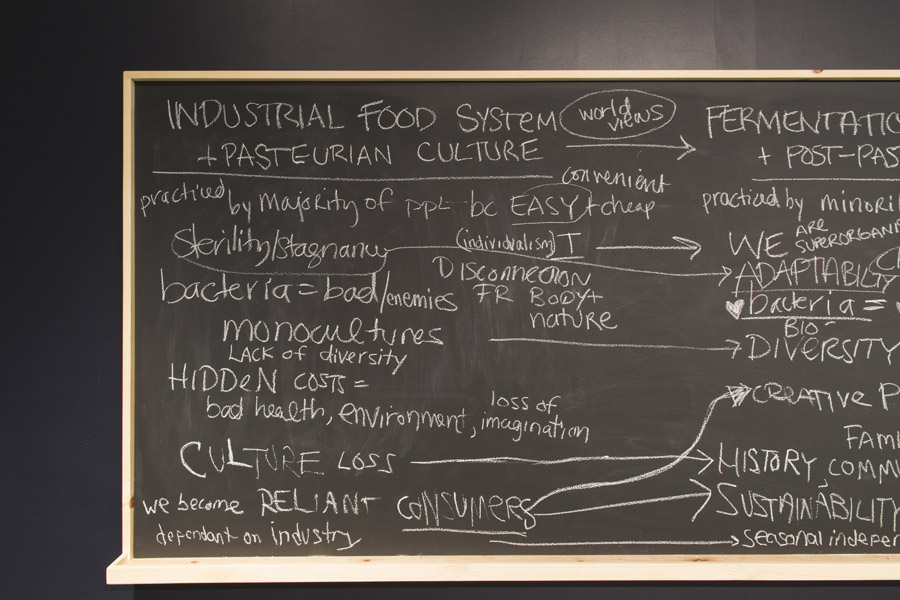 INDUSTRIAL FOOD SYSTEM
+ PASTEURIAN CULTURE
world views
practiced by majority of ppl bc EASY + cheap
convenient
sterility/stagnancy
(individualism) I
bacteria = bad/enemies
DISCONNECTION
FR BODY +
nature
monocultures
LACK OF diversity
HIDDEN COSTS =
bad health, environment, loss of imagination
CULTURE LOSS
we become RELIANT CONSUMERS
dependant on industry
+ POST-PAS
practiced by
WE ARE
ADAPTABILITY
bacteria =
BIO-
DIVERSITY
CREATIVE P
HISTORY,
SUSTAINABILITY
seasonal